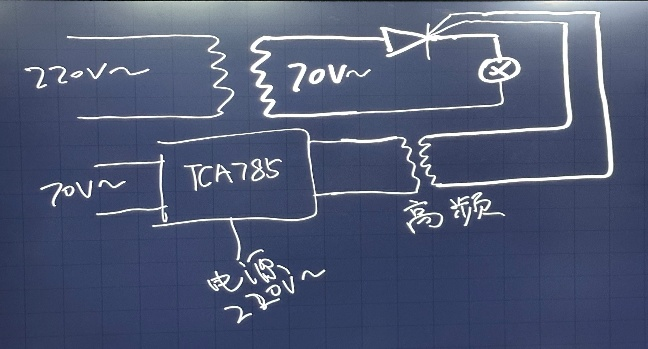 220V~
70V~
70V~
TCA785
高频
电源
220V~